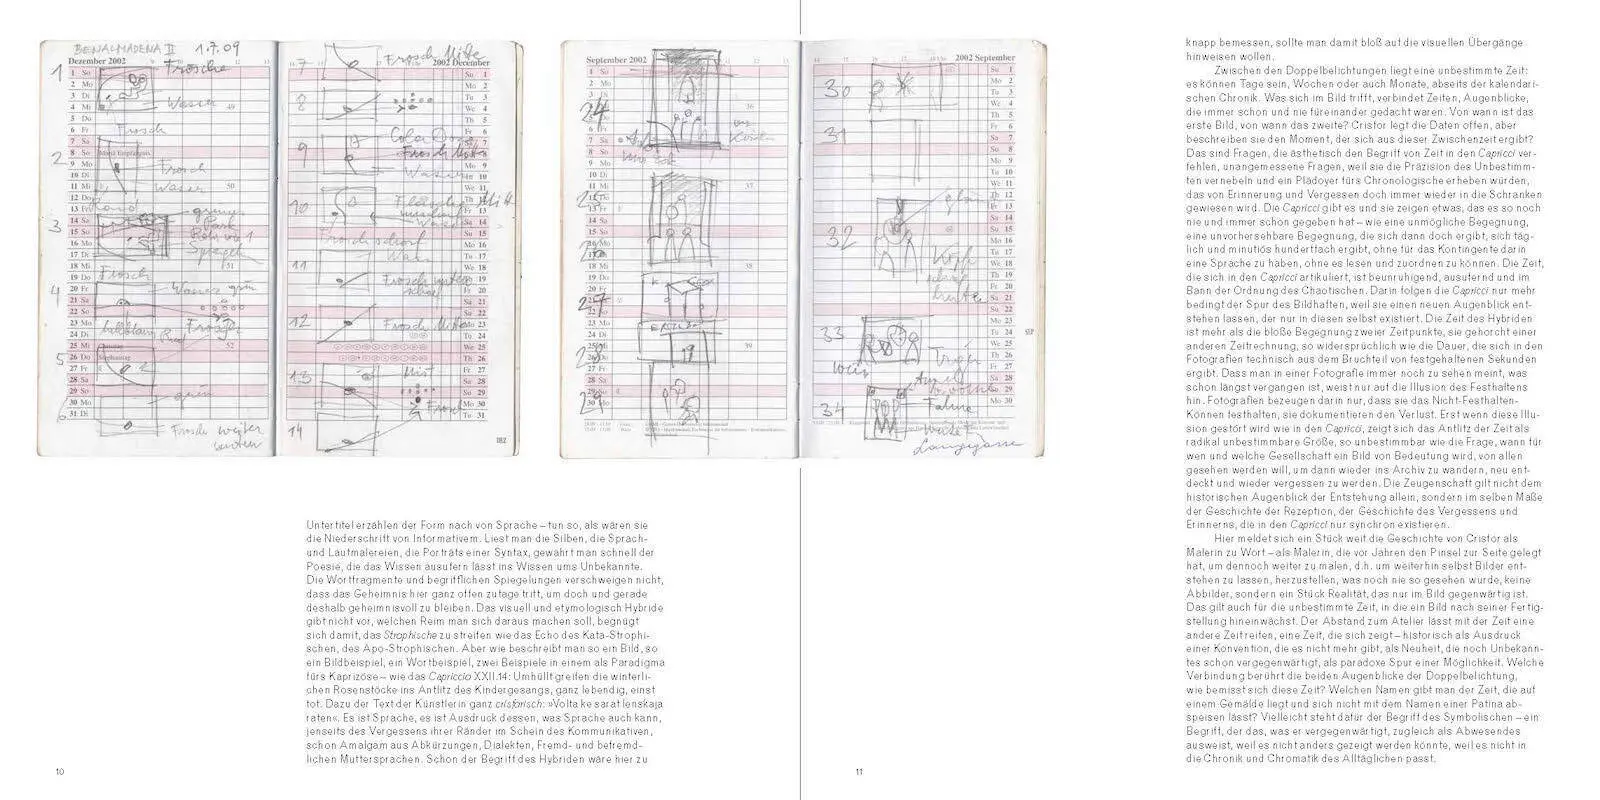 BENALMADENA II 1.7.09
Dezember 2002
2002 December
1 So
2 Mo
3 Di
4 Mi
5 Do
6 Fr
7 Sa
8 So Mariä Empfängnis
9 Mo
10 Di
11 Mi
12 Do
13 Fr
14 Sa
15 So
16 Mo
17 Di
18 Mi
19 Do
20 Fr
21 Sa
22 So
23 Mo
24 Di
25 Mi
26 Do
27 Fr
28 Sa
29 So
30 Mo
31 Di
49
50
51
52
1
Frösche
Wasser
Frosch
2
Frosch
Wasser
3
grünes
Park
Spiegel
Frosch
4
Wasser grün
Frosch
5
grün
Frosch weiter
7
Frosch Mitte
8
9
Wasser
10
11
Frosch unter
12
Frosch Mitte
13
Frosch
14
Su 1
Mo 2
Tu 3
We 4
Th 5
Fr 6
Sa 7
Su 8
Mo 9
Tu 10
We 11
Th 12
Fr 13
Sa 14
Su 15
Mo 16
Tu 17
We 18
Th 19
Fr 20
Sa 21
Su 22
Mo 23
Tu 24
We 25
Th 26
Fr 27
Sa 28
Su 29
Mo 30
Tu 31
182
September 2002
2002 September
1 So
2 Mo
3 Di
4 Mi
5 Do
6 Fr
7 Sa
8 So
9 Mo
10 Di
11 Mi
12 Do
13 Fr
14 Sa
15 So
18 Mi
19 Do
20 Fr
23 Mo
24 Di
27 Fr
28 Sa
30 Mo
36
37
38
39
24
27
29
30
31
32
Kopf
33
34
Lange gasse
Su 1
Mo 2
Tu 3
We 4
Th 5
Fr 6
Sa 7
Su 8
Mo 9
Tu 10
We 11
Th 12
Fr 13
Sa 14
Su 15
Mo 16
Tu 17
We 18
Th 19
Fr 20
Sa 21
Su 22
Mo 23
Tu 24
We 25
Th 26
Fr 27
Sa 28
Su 29
Mo 30
SEP
Untertitel erzählen der Form nach von Sprache – tun so, als wären sie
die Niederschrift von Informativem. Liest man die Silben, die Sprach-
und Lautmalereien, die Porträts einer Syntax, gewahrt man schnell der
Poesie, die das Wissen ausufern lässt ins Wissen ums Unbekannte.
Die Wortfragmente und begrifflichen Spiegelungen verschweigen nicht,
dass das Geheimnis hier ganz offen zutage tritt, um doch und gerade
deshalb geheimnisvoll zu bleiben. Das visuell und etymologisch Hybride
gibt nicht vor, welchen Reim man sich daraus machen soll, begnügt
sich damit, das Strophische zu streifen wie das Echo des Kata-Strophi-
schen, des Apo-Strophischen. Aber wie beschreibt man so ein Bild, so
ein Bildbeispiel, ein Wortbeispiel, zwei Beispiele in einem als Paradigma
fürs Kapriziöse – wie das Capriccio XXII.14: Umhüllt greifen die winterli-
chen Rosenstöcke ins Antlitz des Kindergesangs, ganz lebendig, einst
tot. Dazu der Text der Künstlerin ganz crisfarisch: »Volta ke sarat lenskaja
raten«. Es ist Sprache, es ist Ausdruck dessen, was Sprache auch kann,
jenseits des Vergessens ihrer Ränder im Schein des Kommunikativen,
schon Amalgam aus Abkürzungen, Dialekten, Fremd- und befremd-
lichen Muttersprachen. Schon der Begriff des Hybriden wäre hier zu
10
knapp bemessen, sollte man damit bloß auf die visuellen Übergänge
hinweisen wollen.
Zwischen den Doppelbelichtungen liegt eine unbestimmte Zeit:
es können Tage sein, Wochen oder auch Monate, abseits der kalendari-
schen Chronik. Was sich im Bild trifft, verbindet Zeiten, Augenblicke,
die immer schon und nie füreinander gedacht waren. Von wann ist das
erste Bild, von wann das zweite? Cristor legt die Daten offen, aber
beschreiben sie den Moment, der sich aus dieser Zwischenzeit ergibt?
Das sind Fragen, die ästhetisch den Begriff von Zeit in den Capricci ver-
fehlen, unangemessene Fragen, weil sie die Präzision des Unbestimm-
ten vernebeln und ein Plädoyer fürs Chronologische erheben würden,
das von Erinnerung und Vergessen doch immer wieder in die Schranken
gewiesen wird. Die Capricci gibt es und sie zeigen etwas, das es so noch
nie und immer schon gegeben hat – wie eine unmögliche Begegnung,
eine unvorhersehbare Begegnung, die sich dann doch ergibt, sich täg-
lich und minutiös hundertfach ergibt, ohne für das Kontingente darin
eine Sprache zu haben, ohne es lesen und zuordnen zu können. Die Zeit,
die sich in den Capricci artikuliert, ist beunruhigend, ausufernd und im
Bann der Ordnung des Chaotischen. Darin folgen die Capricci nur mehr
bedingt der Spur des Bildhaften, weil sie einen neuen Augenblick ent-
stehen lassen, der nur in diesen selbst existiert. Die Zeit des Hybriden
ist mehr als die bloße Begegnung zweier Zeitpunkte, sie gehorcht einer
anderen Zeitrechnung, so widersprüchlich wie die Dauer, die sich in den
Fotografien technisch aus dem Bruchteil von festgehaltenen Sekunden
ergibt. Dass man in einer Fotografie immer noch zu sehen meint, was
schon längst vergangen ist, weist nur auf die Illusion des Festhaltens
hin. Fotografien bezeugen darin nur, dass sie das Nicht-Festhalten-
Können festhalten, sie dokumentieren den Verlust. Erst wenn diese Illu-
sion gestört wird wie in den Capricci, zeigt sich das Antlitz der Zeit als
radikal unbestimmbare Größe, so unbestimmbar wie die Frage, wann für
wen und welche Gesellschaft ein Bild von Bedeutung wird, von allen
gesehen werden will, um dann wieder ins Archiv zu wandern, neu ent-
deckt und wieder vergessen zu werden. Die Zeugenschaft gilt nicht dem
historischen Augenblick der Entstehung allein, sondern im selben Maße
der Geschichte der Rezeption, der Geschichte des Vergessens und
Erinnerns, die in den Capricci nur synchron existieren.
Hier meldet sich ein Stück weit die Geschichte von Cristor als
Malerin zu Wort – als Malerin, die vor Jahren den Pinsel zur Seite gelegt
hat, um dennoch weiter zu malen, d.h. um weiterhin selbst Bilder ent-
stehen zu lassen, herzustellen, was noch nie so gesehen wurde, keine
Abbilder, sondern ein Stück Realität, das nur im Bild gegenwärtig ist.
Das gilt auch für die unbestimmte Zeit, in die ein Bild nach seiner Fertig-
stellung hineinwächst. Der Abstand zum Atelier lässt mit der Zeit eine
andere Zeit reifen, eine Zeit, die sich zeigt – historisch als Ausdruck
einer Konvention, die es nicht mehr gibt, als Neuheit, die noch Unbekann-
tes schon vergegenwärtigt, als paradoxe Spur einer Möglichkeit. Welche
Verbindung berührt die beiden Augenblicke der Doppelbelichtung,
wie bemisst sich diese Zeit? Welchen Namen gibt man der Zeit, die auf
einem Gemälde liegt und sich nicht mit dem Namen einer Patina ab-
speisen lässt? Vielleicht steht dafür der Begriff des Symbolischen – ein
Begriff, der das, was er vergegenwärtigt, zugleich als Abwesendes
ausweist, weil es nicht anders gezeigt werden könnte, weil es nicht in
die Chronik und Chromatik des Alltäglichen passt.
11